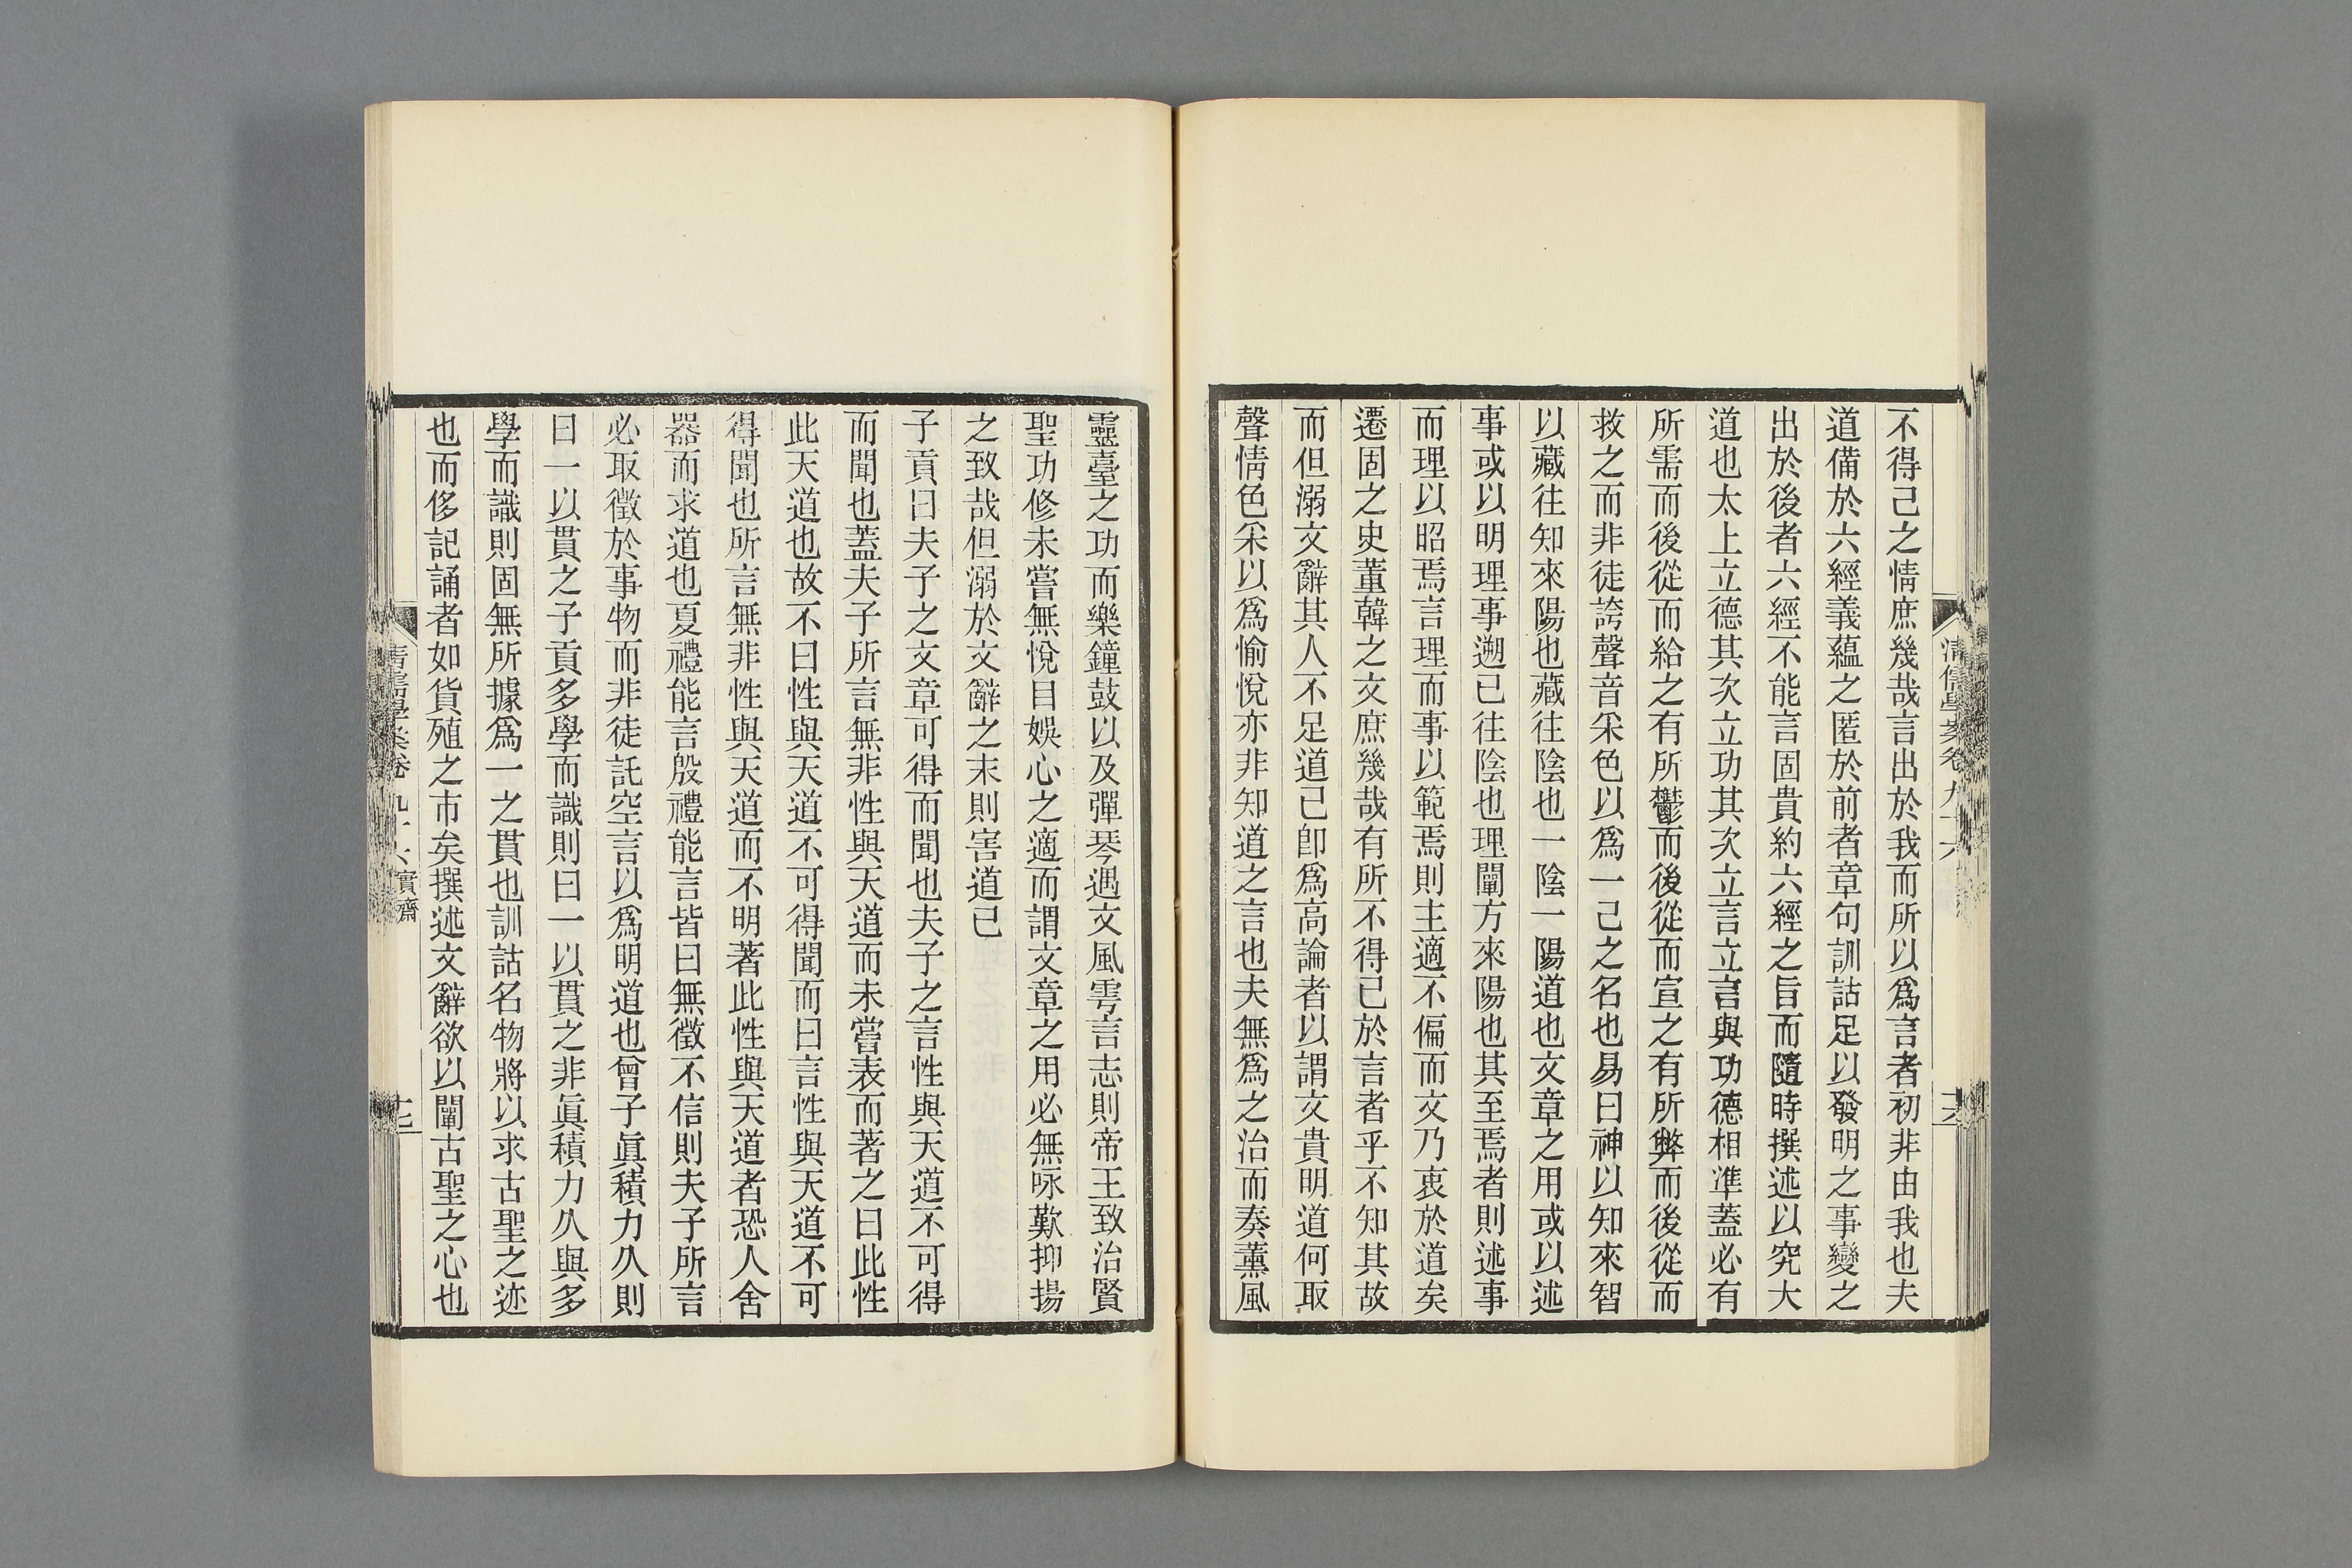 不得已之情庶幾哉言出於我而所以爲言者初非由我也夫
道備於六經義蘊之匿於前者章句訓詁足以發明之事變之
出於後者六經不能言固貴約六經之旨而隨時撰述以究大
道也太上立德其次立功其次立言立言與功德相準蓋必有
所需而後從而給之有所鬱而後從而宣之有所弊而後從而
救之而非徒誇聲音采色以爲一己之名也易曰神以知來智
以藏往知來陽也藏往陰也一陰一陽道也文章之用或以述
事或以明理事遡已往陰也理闡方來陽也其至焉者則述事
而理以昭焉言理而事以範焉則主適不偏而文乃衷於道矣
遷固之史董韓之文庶幾哉有所不得已於言者乎不知其故
而但溺文辭其人不足道已卽爲高論者以謂文貴明道何取
聲情色采以爲愉悅亦非知道之言也夫無爲之治而奏薰風
靈臺之功而樂鐘鼓以及彈琴遇文風雩言志則帝王致治賢
聖功修未嘗無悅目娛心之適而謂文章之用必無咏歎抑揚
之致哉但溺於文辭之末則害道已
子貢曰夫子之文章可得而聞也夫子之言性與天道不可得
而聞也蓋夫子所言無非性與天道而未嘗表而著之曰此性
此天道也故不曰性與天道不可得聞而曰言性與天道不可
得聞也所言無非性與天道而不明著此性與天道者恐人舍
器而求道也夏禮能言殷禮能言皆曰無徵不信則夫子所言
必取徵於事物而非徒託空言以爲明道也曾子眞積力久則
曰一以貫之子貢多學而識則曰一以貫之非眞積力久與多
學而識則固無所據爲一之貫也訓詁名物將以求古聖之迹
也而侈記誦者如貨殖之市矣撰述文辭欲以闡古聖之心也
清儒學案卷九十六 實齋